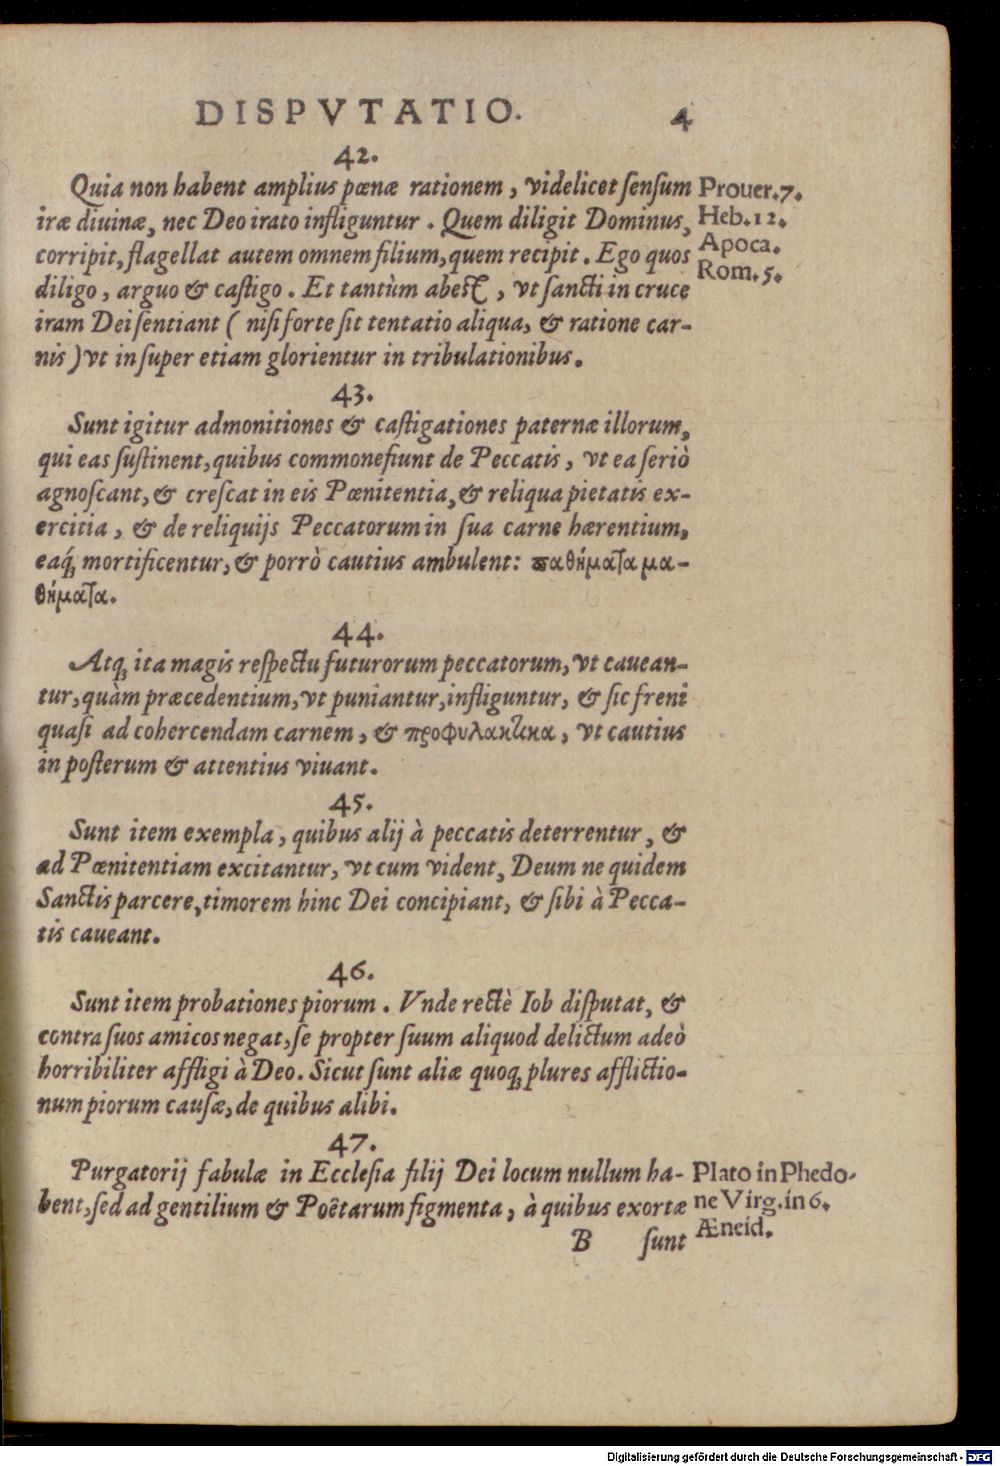 DISPVTATIO. 4
42.
Quia non habent amplius pœnæ rationem, videlicet sensum
iræ diuinæ, nec Deo irato infliguntur. Quem diligit Dominus,
corripit, flagellat autem omnem filium, quem recipit. Ego quos
diligo, arguo & castigo. Et tantùm abest, vt sancti in cruce
iram Dei sentiant ( nisi forte sit tentatio aliqua, & ratione car-
nis ) vt insuper etiam glorientur in tribulationibus.
Prouer. 7.
Heb. 12.
Apoca.
Rom. 5.
43.
Sunt igitur admonitiones & castigationes paternæ illorum,
qui eas sustinent, quibus commonefiunt de Peccatis, vt ea seriò
agnoscant, & crescat in eis Pœnitentia, & reliqua pietatis ex-
ercitia, & de reliquijs Peccatorum in sua carne hærentium,
eaq́; mortificentur, & porrò cautius ambulent: παθήματα μα-
θήματα.
44.
Atq; ita magis respectu futurorum peccatorum, vt cauean-
tur, quàm præcedentium, vt puniantur, infliguntur, & sic freni
quasi ad cohercendam carnem, & προφυλακτικα, vt cautius
in posterum & attentius viuant.
45.
Sunt item exempla, quibus alij à peccatis deterrentur, &
ad Pœnitentiam excitantur, vt cum vident, Deum ne quidem
Sanctis parcere, timorem hinc Dei concipiant, & sibi à Pecca-
tis caueant.
46.
Sunt item probationes piorum. Vnde rectè Iob disputat, &
contra suos amicos negat, se propter suum aliquod delictum adeò
horribiliter affligi à Deo. Sicut sunt aliæ quoq; plures afflictio-
num piorum causæ, de quibus alibi.
47.
Purgatorij fabulæ in Ecclesia filij Dei locum nullum ha-
bent, sed ad gentilium & Poëtarum figmenta, à quibus exortæ
Plato in Phedo-
ne Virg. in 6.
Æneid.
B sunt
Digitalisierung gefördert durch die Deutsche Forschungsgemeinschaft - DFG